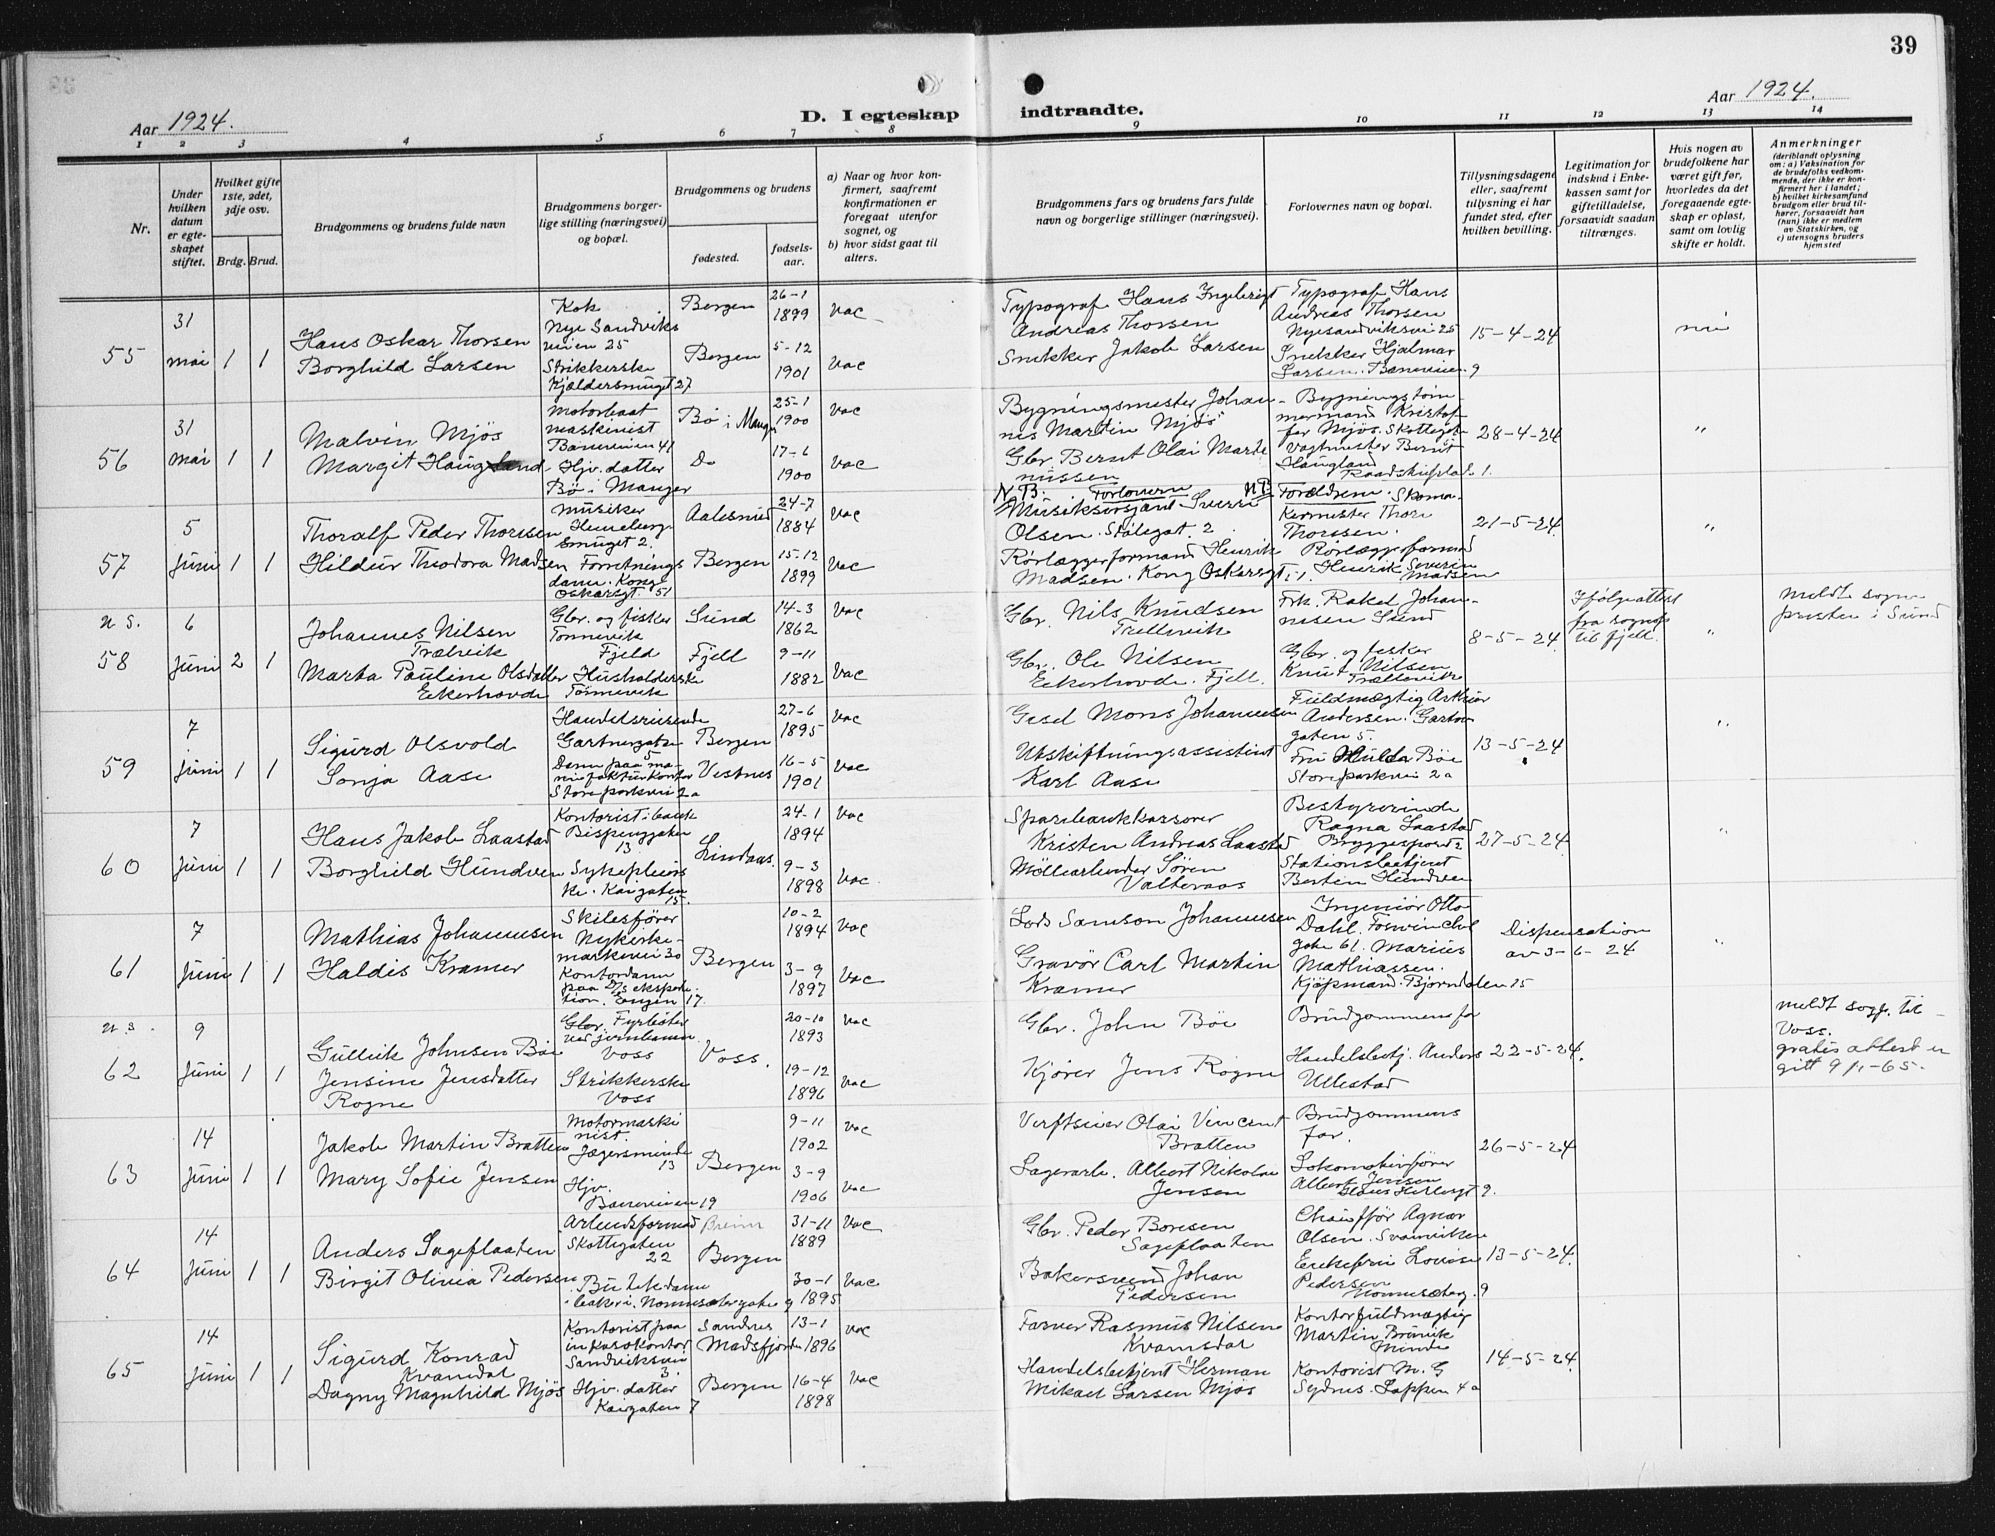 39
Aar 1924.
D. I egteskap indtraadte.
Aar 1924.
1 2 3 4 5 6 7 8 9 10 11 12 13 14
Nr.
Under hvilken datum er egteskapet stiftet.
Hvilket gifte 1ste, 2det, 3dje osv.
Brdg. Brud.
Brudgommens og brudens fulde navn
Brudgommens borgerlige stilling (næringsvei) og bopæl.
Brudgommens og brudens
fødested.
fødselsaar.
a) Naar og hvor konfirmert, saafremt konfirmationen er foregaat utenfor sognet, og
b) hvor sidst gaat til alters.
Brudgommens fars og brudens fars fulde navn og borgerlige stillinger (næringsvei).
Forlovernes navn og bopæl.
Tillysningsdagene eller, saafremt tillysning ei har fundet sted, efter hvilken bevilling.
Legitimation for indskud i Enkekassen samt for giftetilladelse, forsaavidt saadan tiltrænges.
Hvis nogen av brudefolkene har været gift før, hvorledes da det foregaaende egteskap er opløst, samt om lovlig skifte er holdt.
Anmerkninger
(deriblandt oplysning om: a) Vaksination for de brudefolks vedkommende, der ikke er konfirmert her i landet; b) hvilket kirkesamfund brudgom eller brud tilhører, forsaavidt han (hun) ikke er medlem av Statskirken, og c) utensogns bruders hjemsted
55
31 mai 1 1
Hans Oskar Thorsen
Borghild Larsen
Kok
Nye Sandviks
veien 25
Strikkerske
Kjældersmuget 27
Bergen 26-1 1899 vac
Bergen 5-12 1901 vac
Typograf Hans Ingebrigt
Andreas Thorsen
Snekker Jakob Larsen
Typograf Hans
Andreas Thorsen
Nyesandviksvei 25
Snekker Hjalmar
Larsen. Baneveien 9
15-4-24
nei
56
31 mai 1 1
Malvin Mjøs
Margit Haugland
Motorbaat
maskinist
Baneveien 41
Hjv. datter
Bø i Manger
Bø i Manger 25-1 1900 vac
Do 17-6 1900 vac
Bygningsmester Johan-
nes Martin Mjøs
Gbr. Bernt Olai Marti
nussen
Bygningstøm-
mermand Kristof-
fer Mjøs. Skottegt
Vagtmester Bernt
Haugland
Raadstupl. 1.
28-4-24
"
57
5 Juni 1 1
Thoralf Peder Thorssen
Hildur Theodora Madsen
Musiker
Henneberg-
smuget 2.
Forretnings
dame. Kong
Oskarsgt. 51
Aalesund 24-7 1884 vac
Bergen 15-12 1899 vac
N.B. Forlovern NB
Musiksersjant Sverre
Olsen. Stølegat. 2
Rørlæggerformand Henrik
Madsen. Kong Oskarsgt. 51.
Forældrene. Skoma-
kermester Thore
Thorssen.
Rørlæggerformand
Henrik Severin
Madsen
21-5-24
"
u s.
58
6 Juni 2 1
Johannes Nilsen
Trælvik
Marta Pauline Olsdatter
Eekerhovde
Gbr. og fisker
Tonnevik
Fjeld
Husholderske
Tonnevik
Sund 14-3 1862 vac
Fjell 9-11 1882 vac
Gbr. Nils Knudsen
Trellevik
Gbr. Ole Nilsen
Eekerhovde. Fjell.
Frk. Rakel Johan-
nesen Sund
Gbr. og fisker
Knut Nilsen
Trællevik
8-5-24
Ifølge attest
fra sognep
til fjell.
"
Meldt sogne
presten i Sund
59
7 Juni 1 1
Sigurd Olsvold
Sonja Aase
Handelsreisende
Gartnergaten
5
Dame paa ma-
nufakturkontor
Storeparkvei 2a
Bergen 27-6 1895 vac
Vestnes 16-5 1901 vac
Gesel Mons Johannesen
Utskiftningsassistent
Karl Aase
Fuldmægtig Arthur
Andersen. Gartner
gaten 5.
Fru Hulda Bøe
Storeparkvei 2a
13-5-24
"
60
7 Juni 1 1
Hans Jakob Laastad
Borghild Hundven
Kontorist i bank
Bispenggaten
13
Sykepleiers
ke. Kaigaten
15.
Lindaas. 24-1 1894 vac
9-3 1898 vac
Sparebankkasserer
Kristen Andreas Laastad
Møllearbeider Søren
Valteraas
Bestyrerinde
Ragna Laastad
Bryggespords
Stationsbetjent
Bertin Hundven
27-5-24
"
61
7 Juni 1 1
Mathias Johannesen
Haldis Kramer
Skibsfører
Nykirke-
markeveien 30
Kontordame
paa D/s ekspedi-
tion. Engen 17.
Bergen 10-2 1894 vac
3-9 1897 vac
Lods Samson Johannesen
Gravør Carl Martin
Kramer
Ingeniør Otto
Dahl. Foswinckel
gate 61. Marius
Mathiassen.
Kjøpmand. Bjørndalen 15
Dispensation
av 3-6-24
"
u s.
62
9 Juni 1 1
Gullik Johnsen Bøe
Jensine Jensdatter
Rogne
Gbr. Fyrbøter
ved jernbanen
Voss
Strikkerske
Voss
Voss. 20-10 1893 vac
19-12 1896 vac
Gbr. John Bøe
Kjører Jens Rogne
Brudgommens far
Handelsbetj. Anders
Ullestad
22-5-24.
meldt sogp. til
Voss.
gratis attest er
gitt 9/1-65.
63
14 Juni 1 1
Jakob Martin Bratten
Mary Sofie Jensen
Motormaski
nist.
Jægersminde
13
Hjv.
Baneveien 19
Bergen 9-11 1902 vac
3-9 1906 vac
Verftseier Olai Vincent
Bratten
Lagerarb. Albert Nikolai
Jensen
Brudgommens
far.
Lokomotivfører
Albert Jensen
Claus Helbergt 9.
26-5-24
64
14 Juni 1 1
Anders Sageflaaten
Birgit Olivia Pedersen
Arbeidsformad
Skottegaten
22
Butikdame
i bakeri. Nonnesætergaten 9
Breim 31-11 1889 vac
Bergen 30-1 1895 vac
Gbr. Peder Boresen
Sageflaaten
Bakersvend Johan
Pedersen
Chauffør Agnar
Olsen. Svaneviken
Enkefru Lovise
Pedersen
Nonnesæterg. 9
13-5-24.
65
14 Juni 1 1
Sigurd Konrad
Kvamdal
Dagny Magnhild Mjøs
Kontorist paa
inkassokontor
Sandviksvei
3.
Hjv. datter
Kaigaten 7
Sandnes
Masfjorden 13-1 1896 vac
Bergen 16-4 1898 vac
Farver Rasmus Nilsen
Kvamsdal
Handelsbetjent Herman
Mikael Larsen Mjøs
Kontorfuldmægtig
Martin Brunvik
Minde
Kontorist M. G
Sydnes. Lappen 4a
14-5-24.